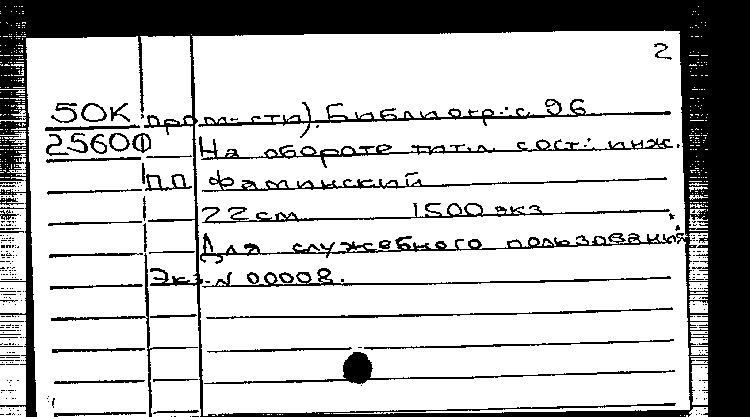 2
50К пром-сти). Библиогр.: с. 96
25600 На обороте тит. л. сост.: инж.
П.П. Фаминский
22 см 1500 экз.
Для служебного пользования
Экз. N 00008.